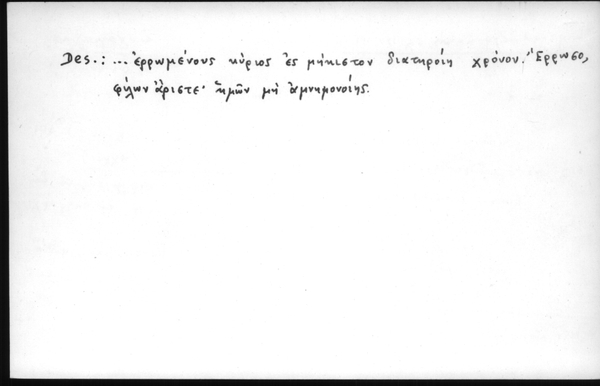 Des.: ... ἐρρωμένους κύριος ἐς μήκιστον διατηροίη χρόνον. Ἔρρωσο,
φίλων ἄριστε· ἡμῶν μὴ ἀμνημονοίης.